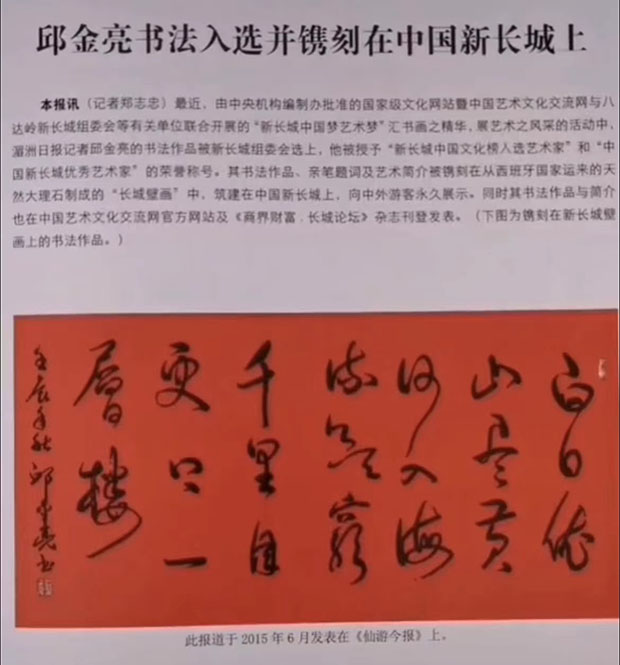 邱金亮书法入选并镌刻在中国新长城上
本报讯（记者郑志忠）最近，由中央机构编制办批准的国家级文化网站暨中国艺术文化交流网与八
达岭新长城组委会等有关单位联合开展的“新长城中国梦艺术梦”汇书画之精华，展艺术之风采的活动中，
湄洲日报记者邱金亮的书法作品被新长城组委会选上，他被授予“新长城中国文化榜人选艺术家”和“中
国新长城优秀艺术家”的荣誉称号。其书法作品、亲笔题词及艺术简介被镌刻在从西班牙国家运来的天
然大理石制成的“长城壁画”中，筑建在中国新长城上，向中外游客永久展示。同时其书法作品与简介
也在中国艺术文化交流网官方网站及《商界财富．长城论坛》杂志刊登发表。（下图为镌刻在新长城壁
画上的书法作品。）
白日依
山尽黄
河入海
流欲窮
千里目
更上一
層楼
壬辰年秋邱金亮书
此报道于2015年6月发表在《仙游今报》上。